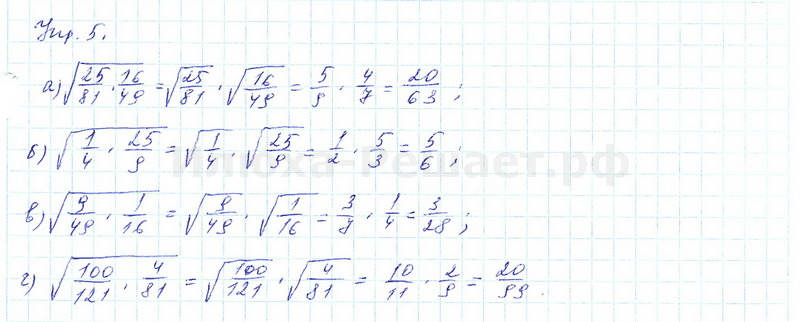 Упр. 5.
а) √(25/81 · 16/49) = √(25/81) · √(16/49) = 5/9 · 4/7 = 20/63 ;
б) √(1/4 · 25/9) = √(1/4) · √(25/9) = 1/2 · 5/3 = 5/6 ;
в) √(9/49 · 1/16) = √(9/49) · √(1/16) = 3/7 · 1/4 = 3/28 ;
г) √(100/121 · 4/81) = √(100/121) · √(4/81) = 10/11 · 2/9 = 20/99 .